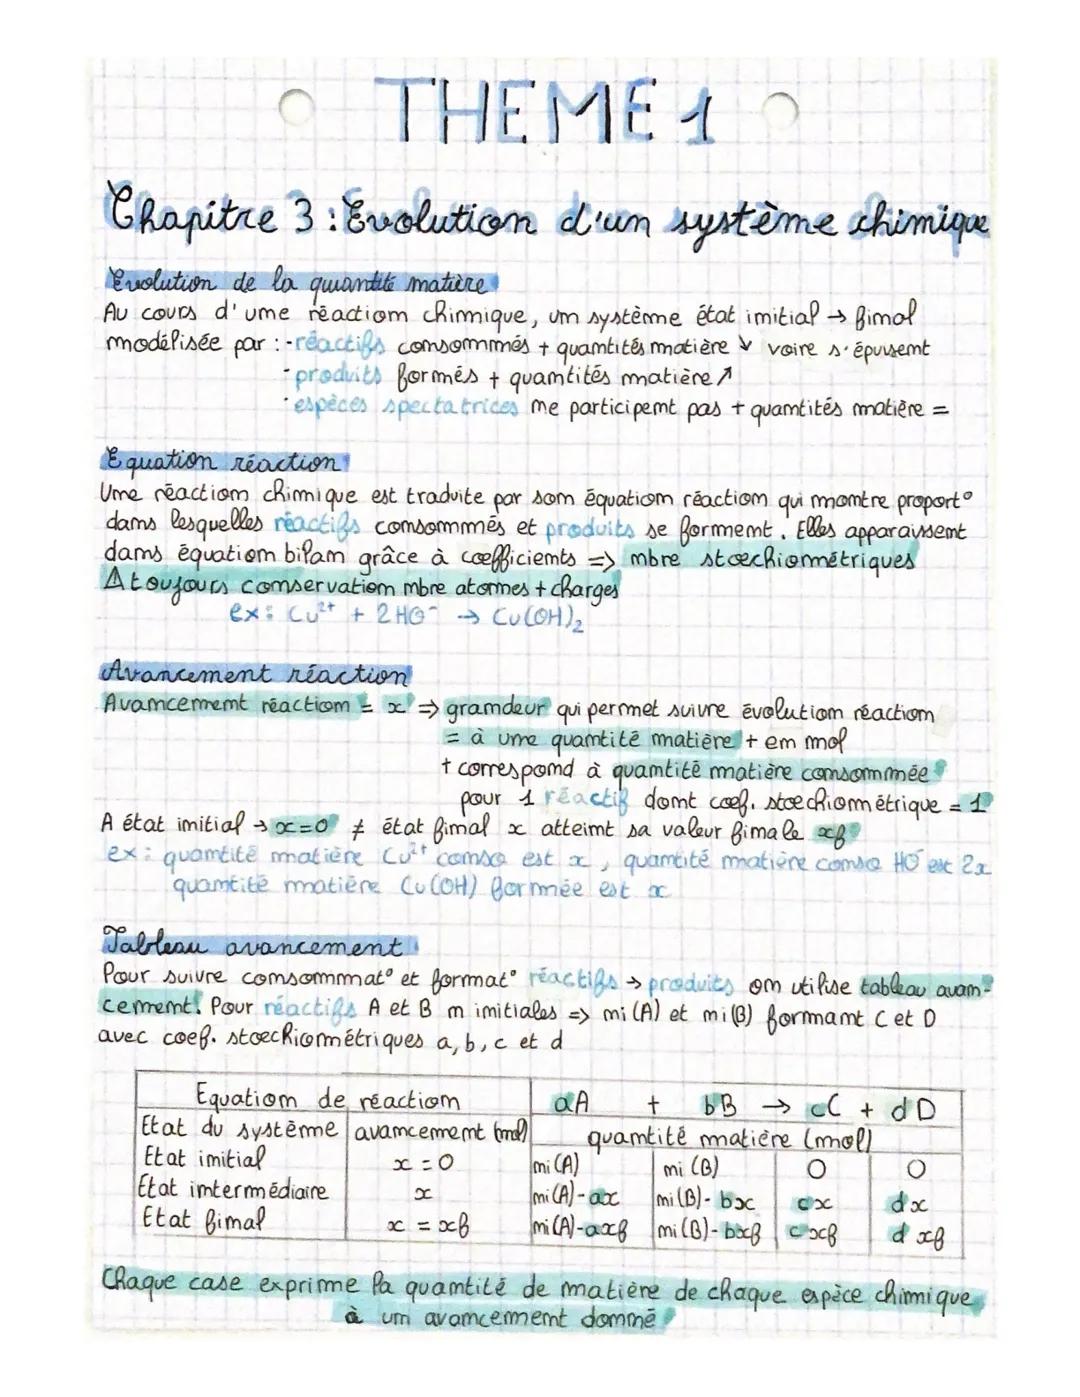 THEME 1
Chapitre 3 : Evolution d'un système chimique
Evolution de la quantité matière
Au cours d'une réaction chimique, un système état initial → final
modélisée par : - réactifs consommés + quantités matière ↘ voire s'épuisent
- produits formés + quantités matière ↗
· espèces spectatrices ne participent pas + quantités matière =
Equation réaction
Une réaction chimique est traduite par son équation réaction qui montre proport°
dans lesquelles réactifs consommés et produits se forment. Elles apparaissent
dans équation bilan grâce à coefficients => nbre stoechiométriques
∆ toujours conservation nbre atomes + charges
ex : Cu²⁺ + 2 HO⁻ → Cu(OH)₂
Avancement réaction
Avancement réaction = x => grandeur qui permet suivre évolution réaction
= à une quantité matière + en mol
+ correspond à quantité matière consommée
pour 1 réactif dont coef. stoechiométrique = 1
A état initial → x=0 ≠ état final x atteint sa valeur finale xf
ex : quantité matière Cu²⁺ conso est x, quantité matière conso HO⁻ est 2x
quantité matière Cu(OH) formée est x
Tableau avancement
Pour suivre consommat° et format° réactifs → produits on utilise tableau avan-
cement. Pour réactifs A et B n initiales => ni(A) et ni(B) formant C et D
avec coef. stoechiométriques a, b, c et d
Equation de réaction aA + bB → cC + dD
Etat du système avancement (mol) quantité matière (mol)
Etat initial x = 0 ni(A) ni(B) 0 0
Etat intermédiaire x ni(A)-ax ni(B)-bx cx dx
Etat final x = xf ni(A)-axf ni(B)-bxf cxf d xf
Chaque case exprime la quantité de matière de chaque espèce chimique
à un avancement donné